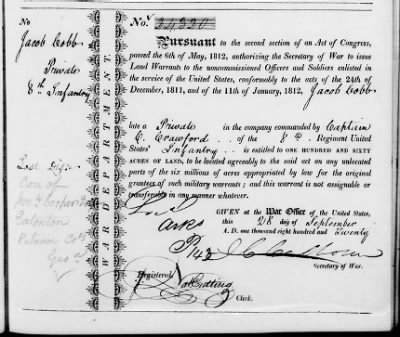 No
Jacob Cobb
Private
8th Infantry
Care of
Eatonton
Putnam Coty
Geoa
WAR DEPARTMENT.
No. 24320
Pursuant to the second section of an Act of Congress,
passed the 6th of May, 1812, authorizing the Secretary of War to issue
Land Warrants to the noncommissioned Officers and Soldiers enlisted in
the service of the United States, conformably to the acts of the 24th of
December, 1811, and of the 11th of January, 1812, Jacob Cobb
late a Private in the company commanded by Captain
C. Crawford of the 8th Regiment United
States' Infantry is entitled to ONE HUNDRED AND SIXTY
ACRES OF LAND, to be located agreeably to the said act on any unlocated
parts of the six millions of acres appropriated by law for the original
grantees of such military warrants; and this warrant is not assignable or
transferable in any manner whatever.
GIVEN at the War Office of the United States,
this 28 day of September
A. D. one thousand eight hundred and Twenty
Arks
P 143 J C Calhoun
Secretary of War.
Registered,
Nat Cutting
Clerk.